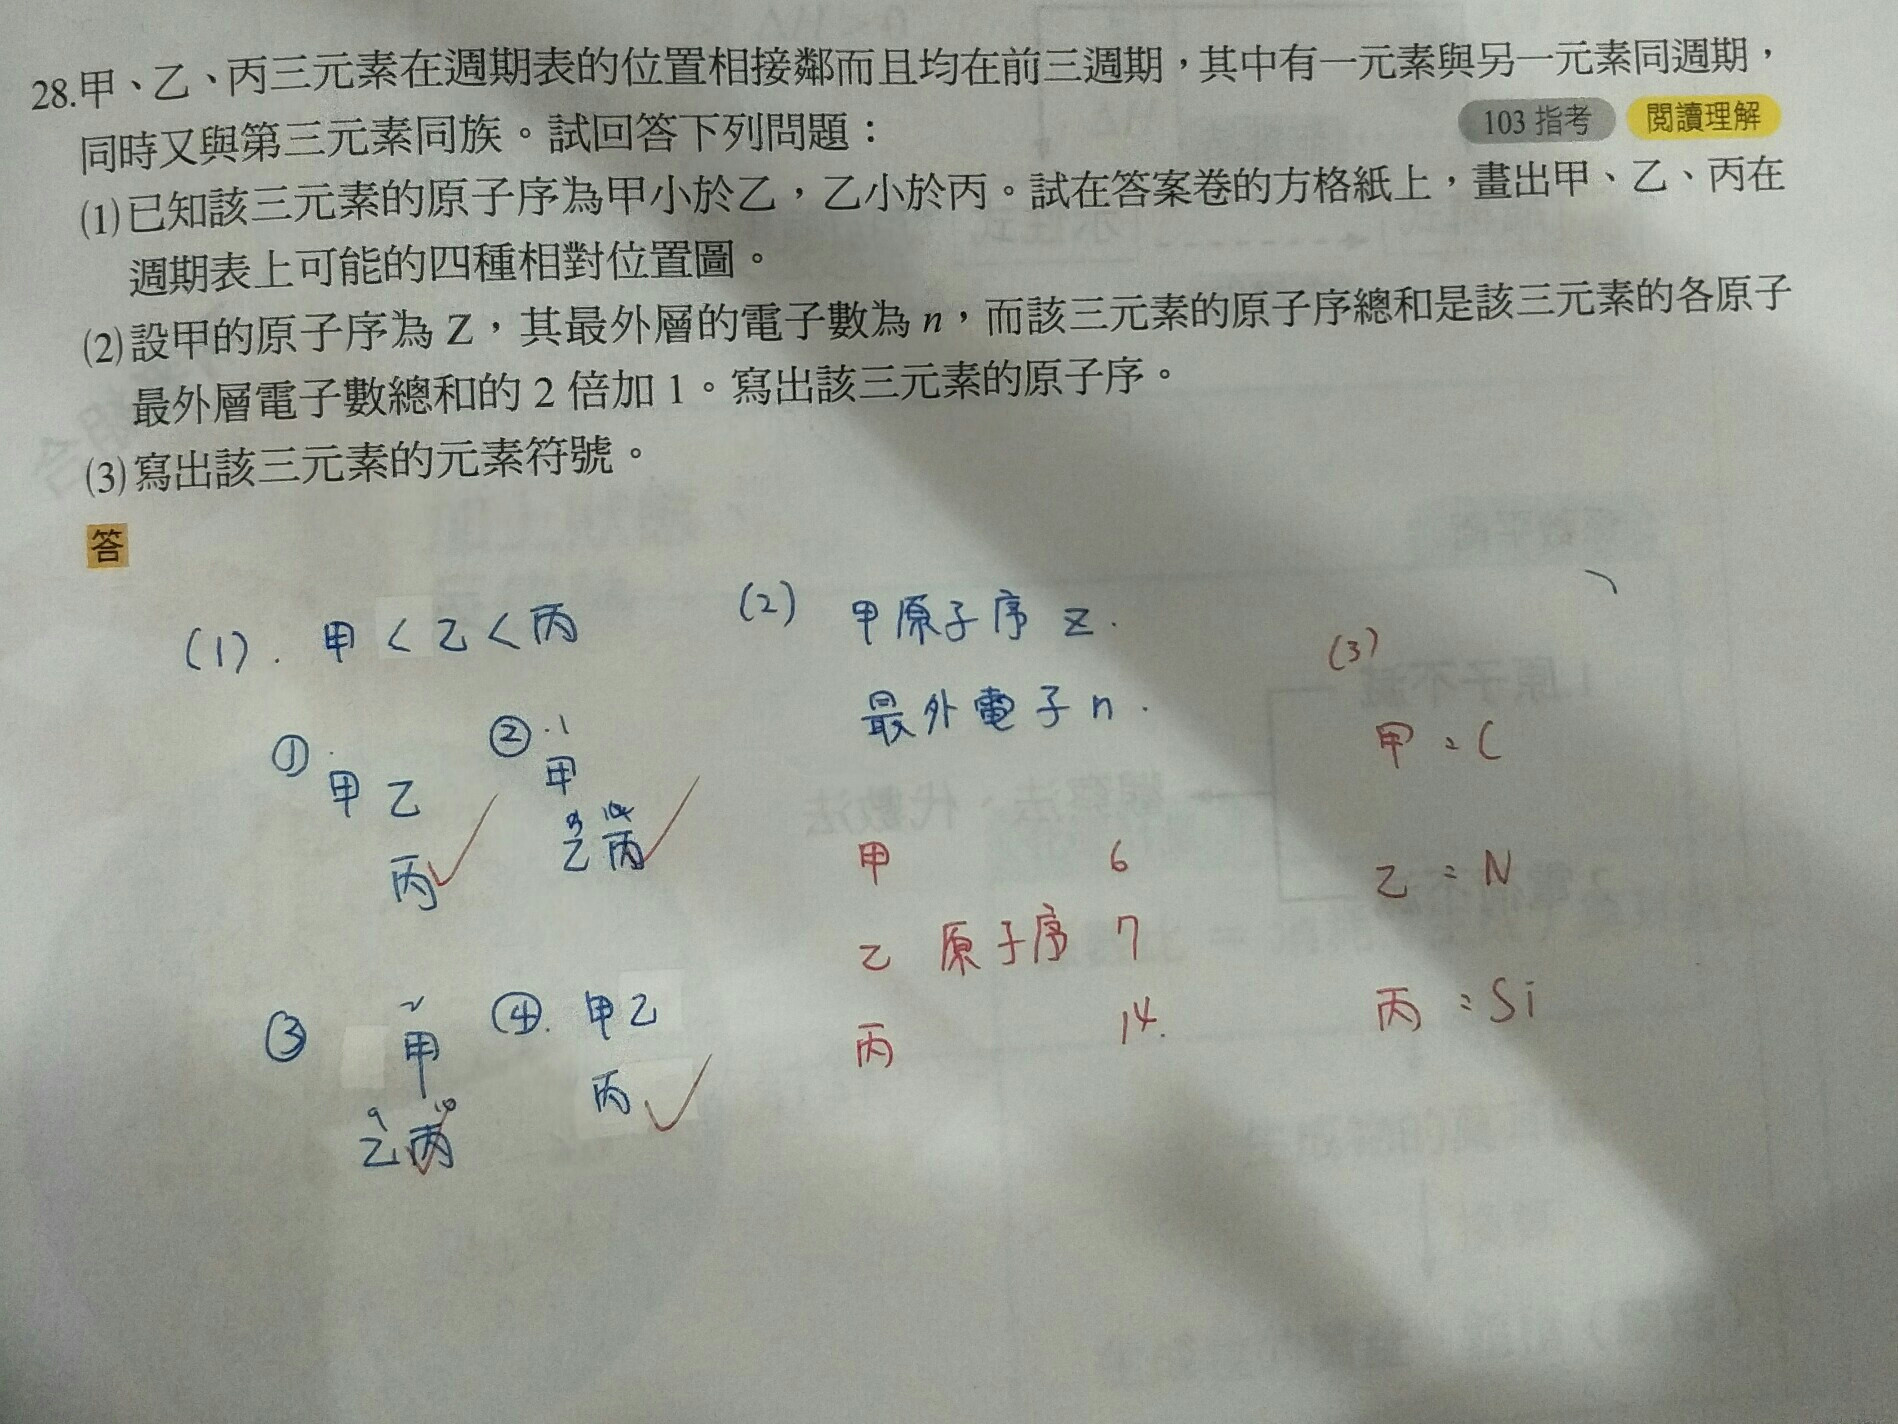 28.甲、乙、丙三元素在週期表的位置相接鄰而且均在前三週期，其中有一元素與另一元素同週期，
同時又與第三元素同族。試回答下列問題：
103 指考 閱讀理解
(1)已知該三元素的原子序為甲小於乙，乙小於丙。試在答案卷的方格紙上，畫出甲、乙、丙在
週期表上可能的四種相對位置圖。
(2)設甲的原子序為 Z，其最外層的電子數為 n，而該三元素的原子序總和是該三元素的各原子
最外層電子數總和的 2 倍加 1。寫出該三元素的原子序。
(3)寫出該三元素的元素符號。
答
(1). 甲 < 乙 < 丙
① 甲 乙
丙
② 甲
乙 丙
③ 甲
乙 丙
④. 甲乙
丙
(2) 甲原子序 Z.
最外電子 n.
甲 6
乙 原子序 7
丙 14.
(3)
甲 = C
乙 = N
丙 = Si